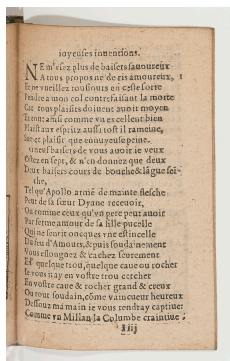 ioyeuses inuentions.
NE m'vsez plus de baisers sauoureux
A tous propos ne de ris amoureux, 1
Et ne vueillez tousiours en ceste sorte
Pendre a mon col contrefaisant la morte
Car tous plaisirs doiuent auoir moyen
Et tout ainsi comme vn excellent bien
Plaist aux espritz aussi tost il rameine,
Sur plaisir que ennuyeuse peine.
neuf baisers de vous auoir ie veux
Ostez en sept, & n'en donnez que deux
Deux baisers cours de bouche & lãgue sei-
che,
Tel qu'Apollo armé de mainte flesche
Peut de sa sœur Dyane receuoir,
Ou comme ceux qu'vn pere peut auoir
Par ferme amour de sa fille pucelle
Qui ne sentit oncques vne estincelle
Du feu d'Amours, & puis soudainement
Vous eslongnez & cachez seurement
En quelque trou, quelque caue ou rocher
Ie vous iray en vostre trou cercher
En vostre caue & rocher grand & creux
Ou tout soudain, cõme vaincueur heureux
Dessouz ma main ie vous rendray captiue:
Comme vn Millan la Columbe craintiue
iiij